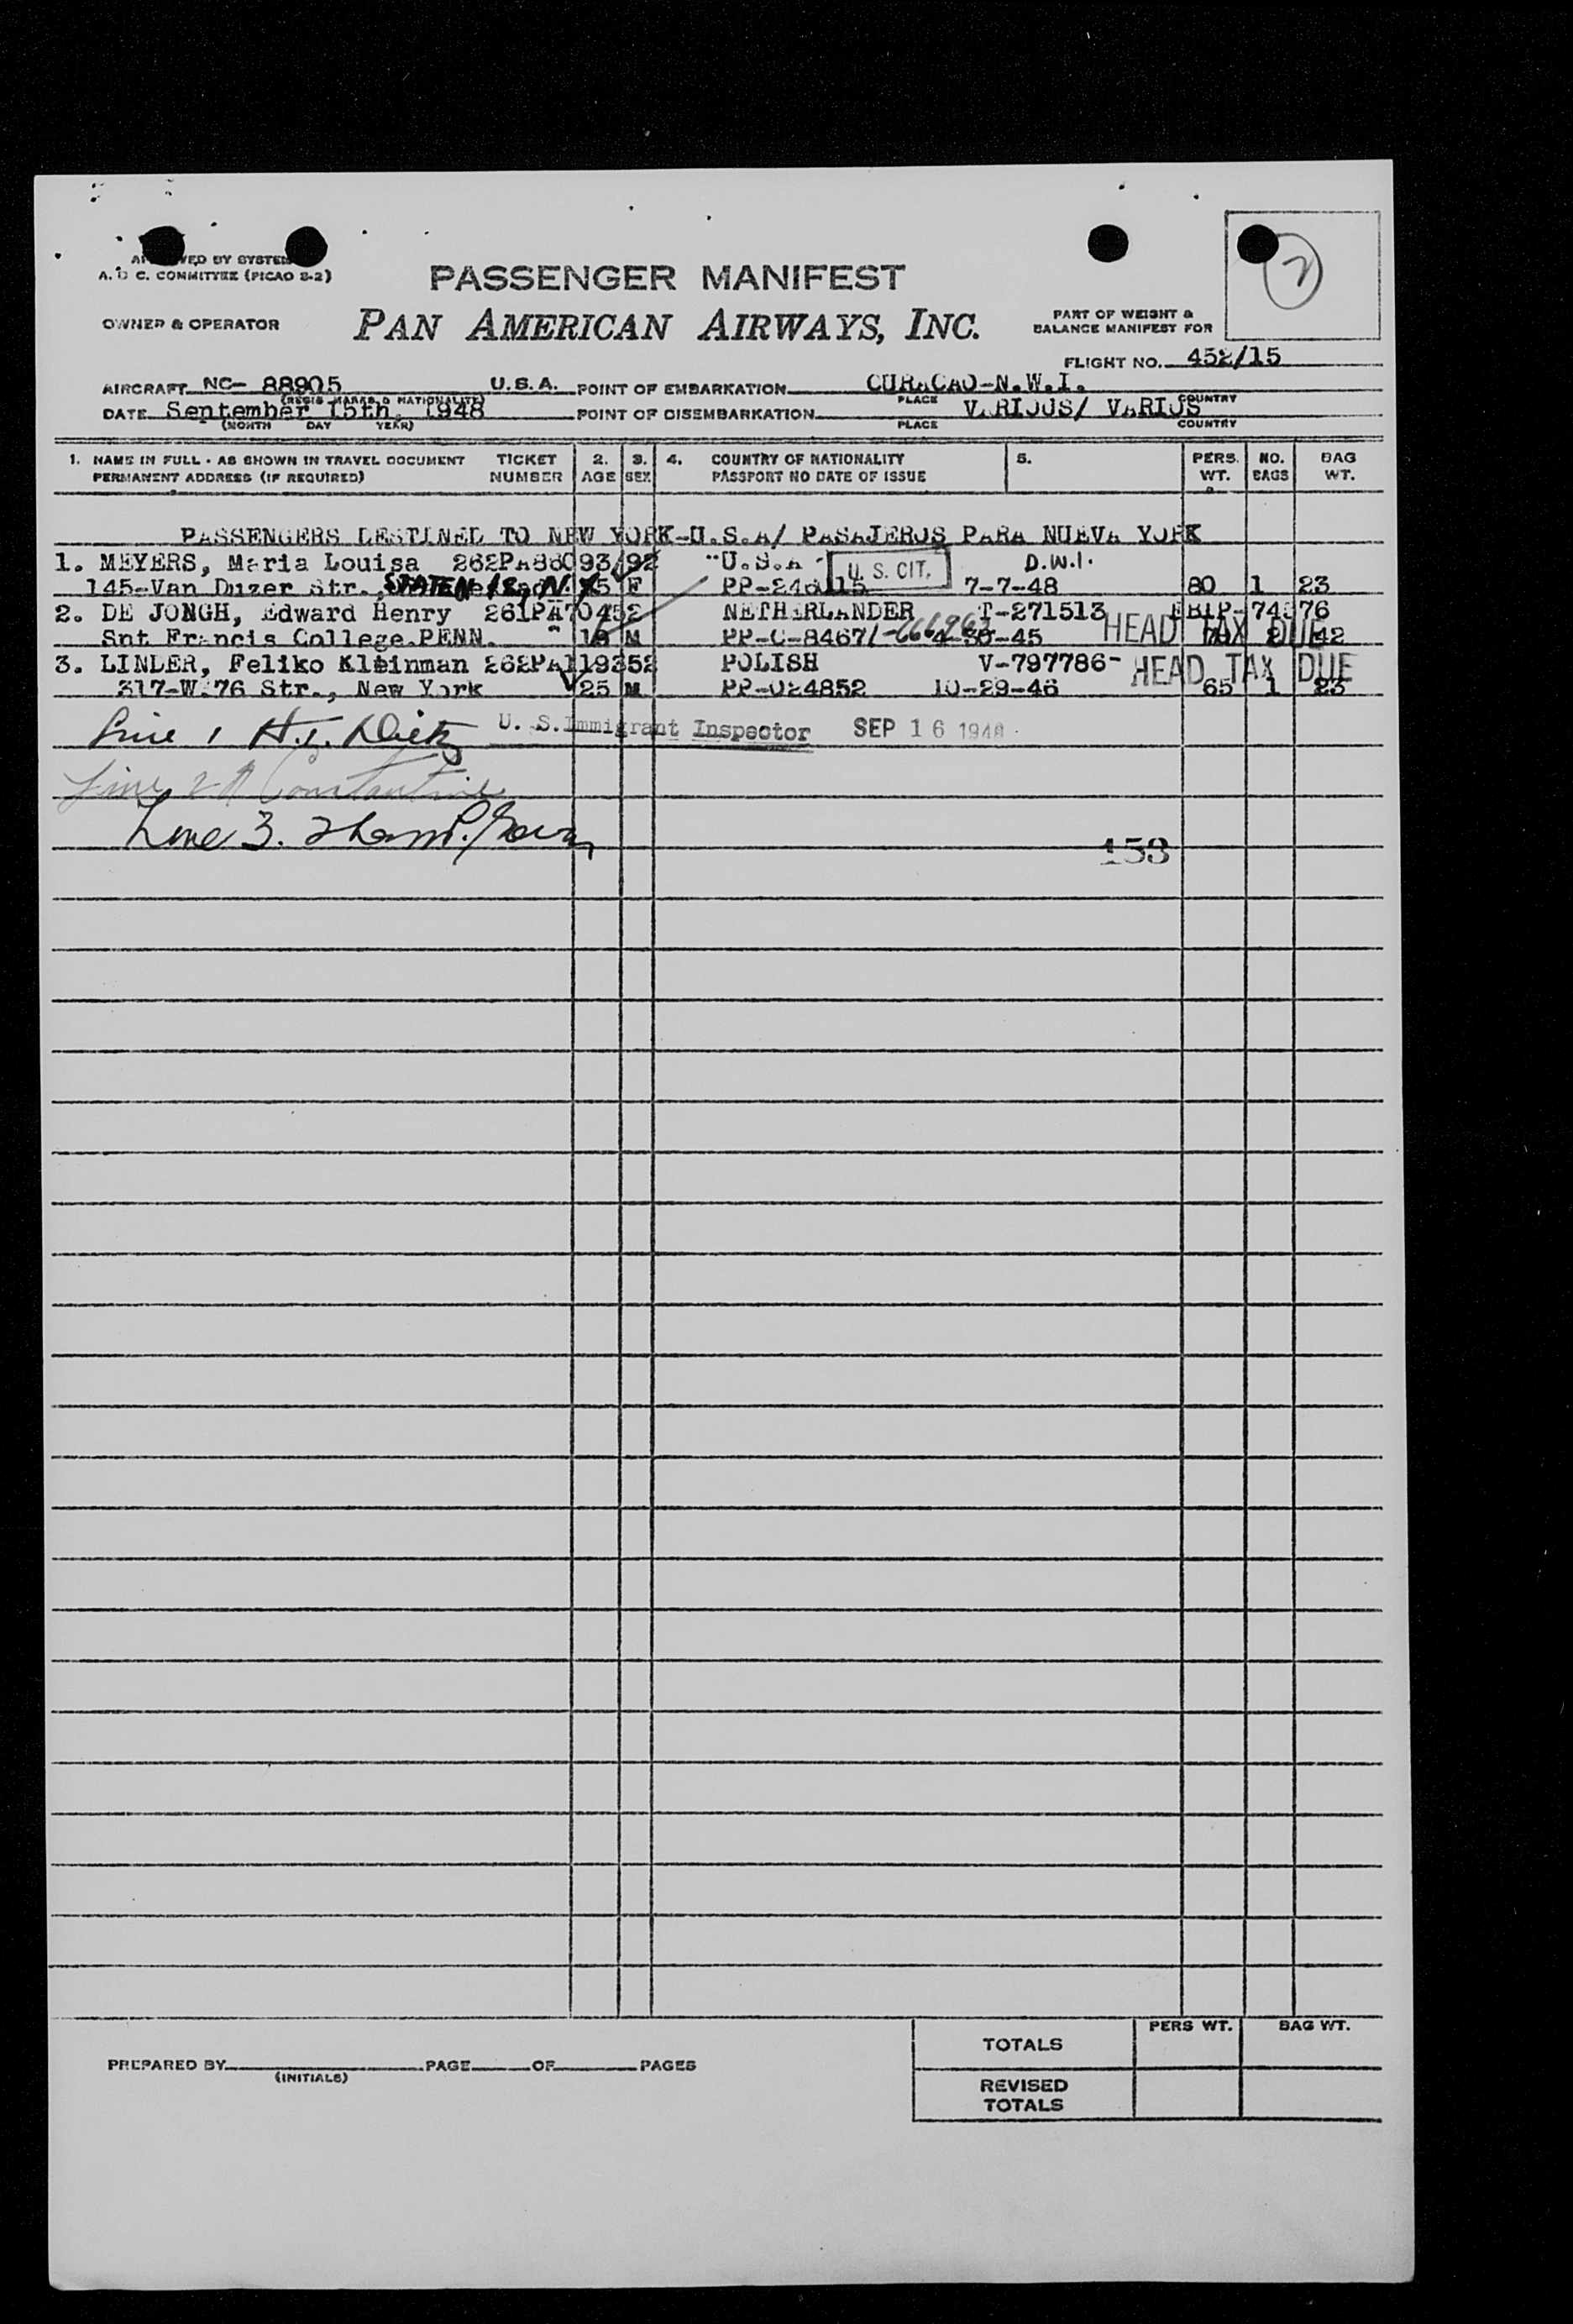 2
A. D C. COMMITTEE (PICAO S-2)
PASSENGER MANIFEST
OWNER & OPERATOR PAN AMERICAN AIRWAYS, INC.
PART OF WEIGHT &
BALANCE MANIFEST FOR
FLIGHT NO. 452/15
AIRCRAFT NC- 88905 U.S.A. POINT OF EMBARKATION CURACAO-N.W.I.
(REGIS MARKS & NATIONALITY) PLACE COUNTRY
DATE September 15th, 1948 POINT OF DISEMBARKATION VARIOUS/ VARIUS
(MONTH DAY YEAR) PLACE COUNTRY
1. NAME IN FULL - AS SHOWN IN TRAVEL DOCUMENT TICKET 2. 3. 4. COUNTRY OF NATIONALITY 5. PERS. NO. BAG
PERMANENT ADDRESS (IF REQUIRED) NUMBER AGE SEX PASSPORT NO DATE OF ISSUE WT. BAGS WT.
PASSENGERS DESTINED TO NEW YORK-U.S.A/ PASAJEROS PARA NUEVA YORK
1. MEYERS, Maria Louisa 262PA88093/92 U.S.A U. S. CIT. D.W.I.
145-Van Duzer Str., STATEN IS, N.Y. F 7-7-48 80 1 23
2. DE JONGH, Edward Henry 261PA70452 NETHERLANDER T-271513
Snt Francis College.PENN. 18 M PP-C-8467 4-30-45 HEAD TAX DUE 2 42
3. LINDER, Feliko Kleinman 262PA119352 POLISH V-797786- HEAD TAX DUE
317-W.76 Str., New York 25 M PP-024852 10-29-46 65 1 23
Line 1 H.T. U. S. Immigrant Inspector SEP 16 1948
Line 2 A Constantine
Line 3.
153
PREPARED BY PAGE OF PAGES
(INITIALS)
TOTALS PERS WT. BAG WT.
REVISED
TOTALS